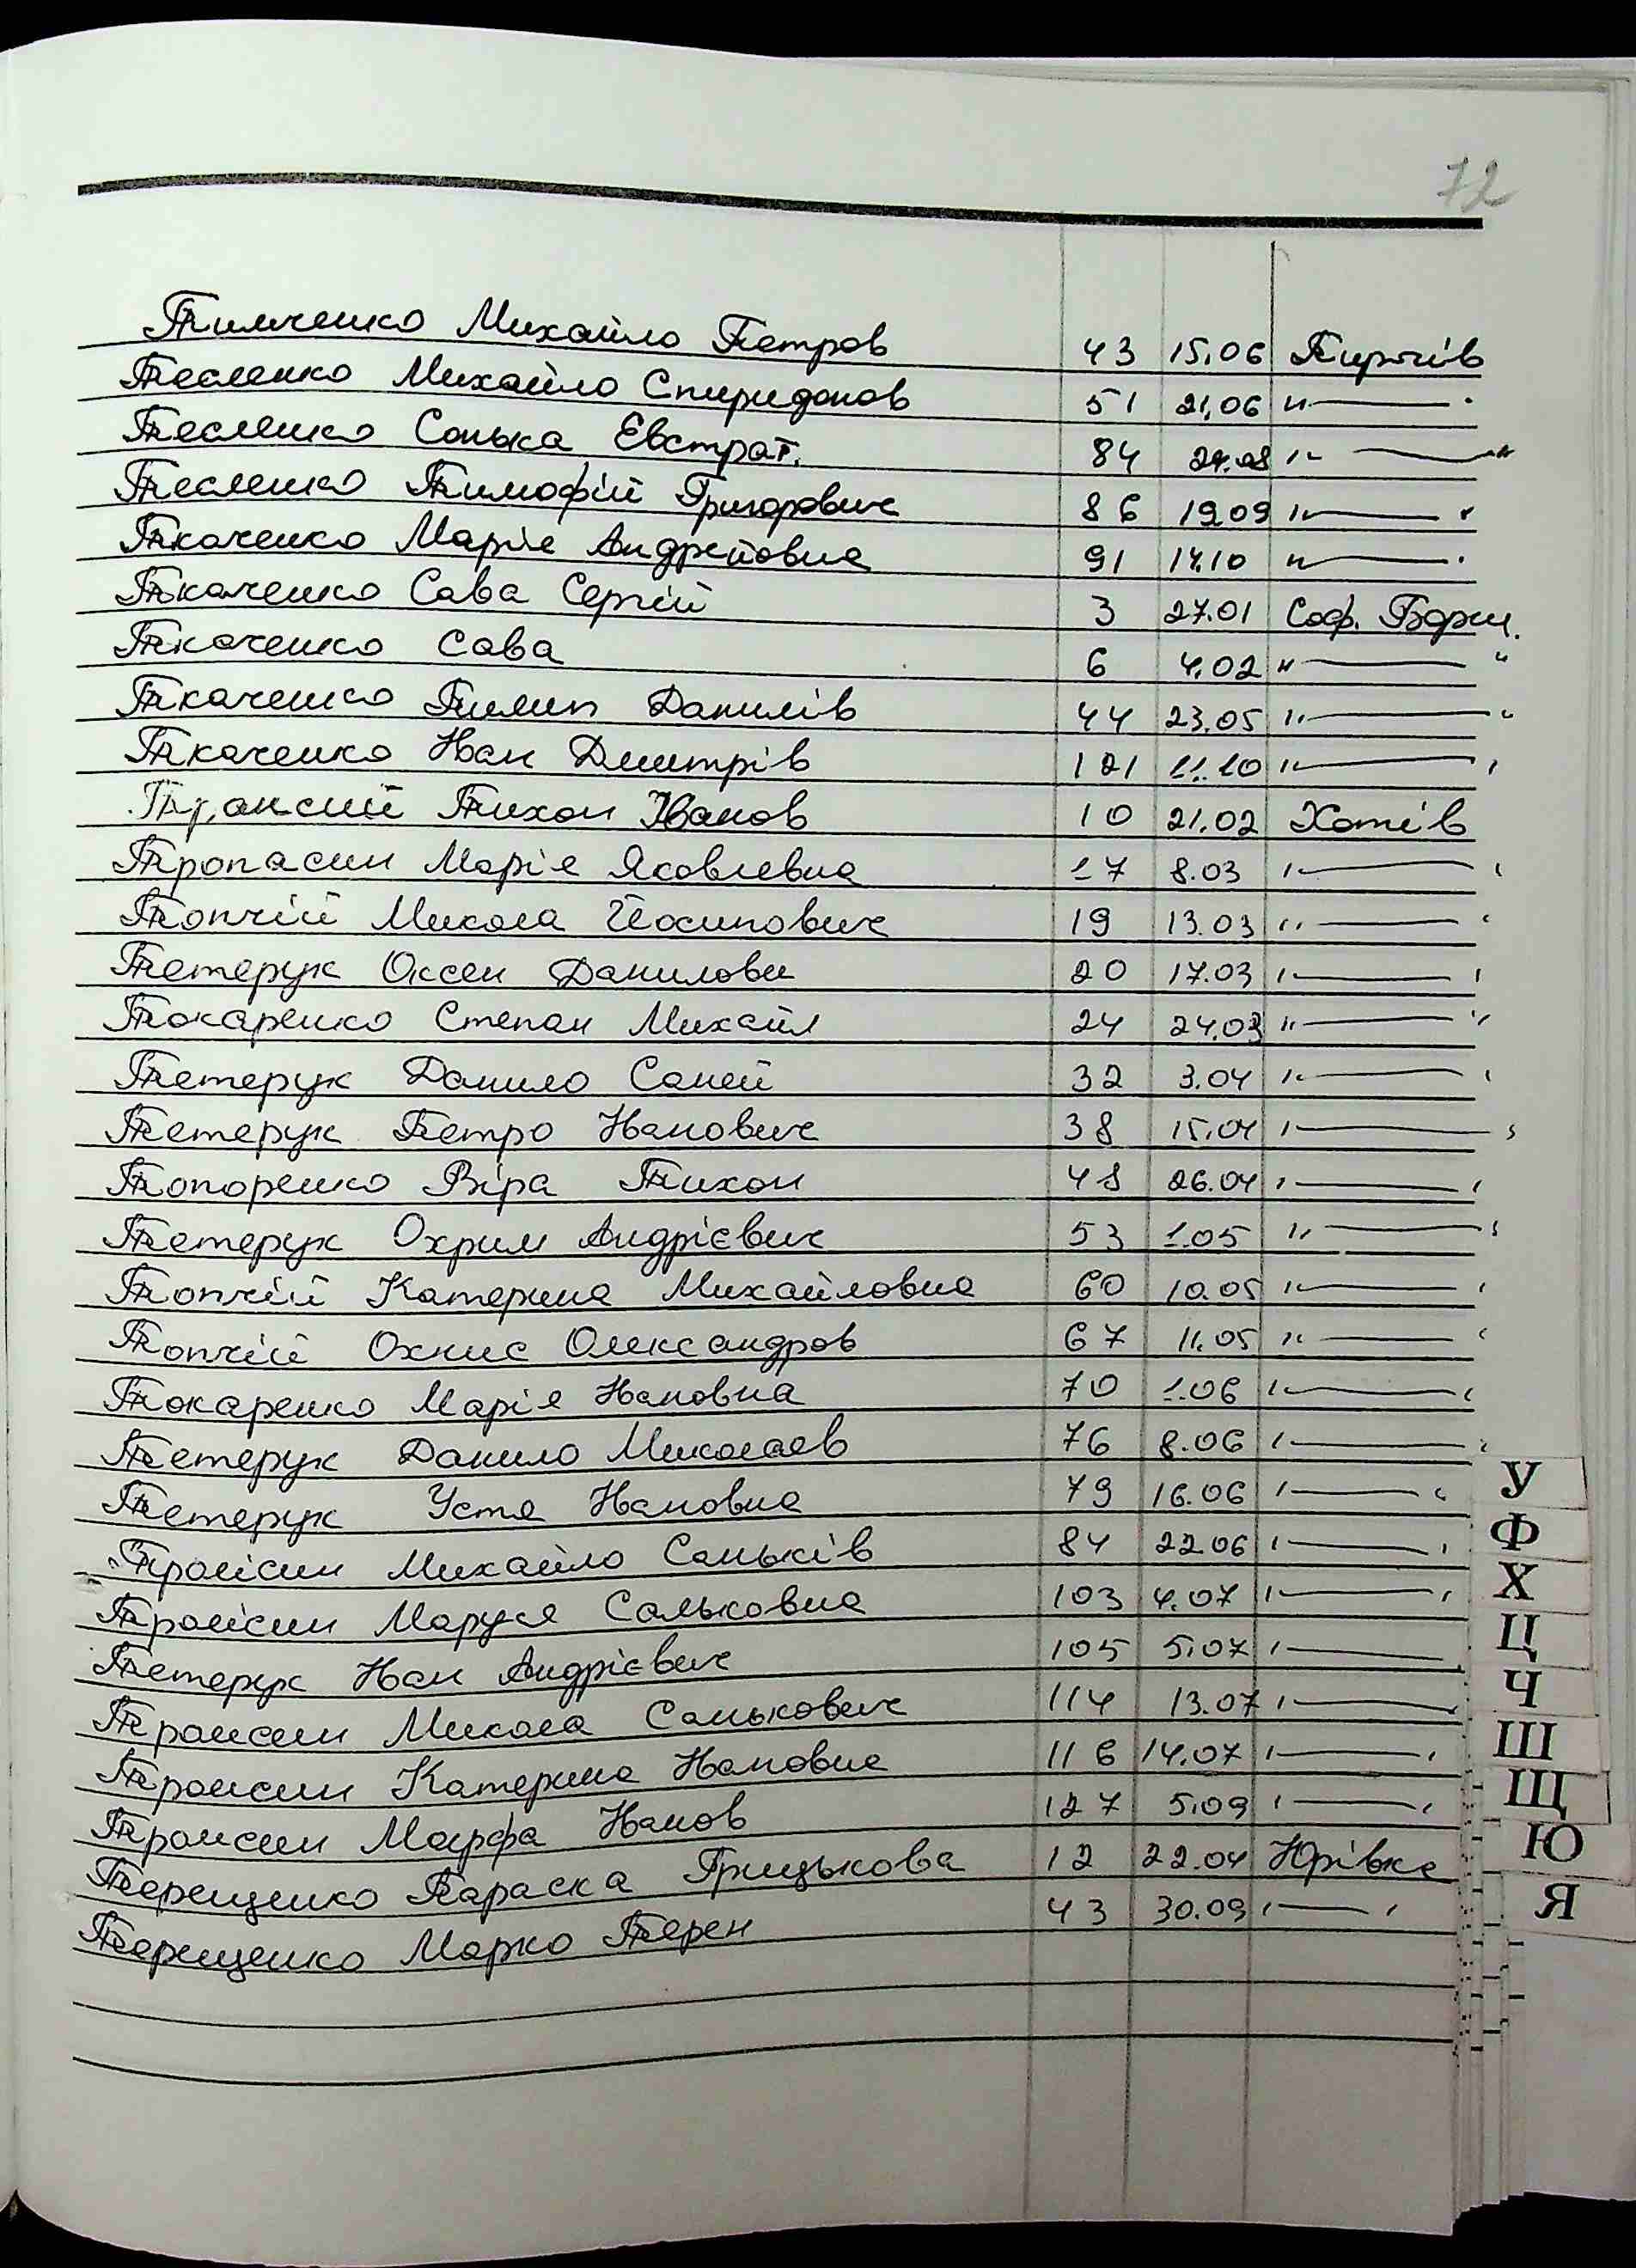 72
Тимченко Михайло Петров 43 15.06 Пирогів
Тесленко Михайло Спиридонов 51 21.06 " — "
Тесленко Сонька Евстрат. 84 " — "
Тесленко Тимофій Григорович 86 19.09 " — "
Ткаченко Маріє Андрейовна 91 14.10 " — "
Ткаченко Сава Сергій 3 27.01 Соф. Борщ.
Ткаченко Сава 6 4.02 " — "
Ткаченко Пилип Данилів 44 23.05 " — "
Ткаченко Іван Дмитрів 121 11.10 " — "
Тихон Іванов 10 21.02 Хотів
Тропасин Марія Яковлевна 17 8.03 " — "
Топчій Микола Йосипович 19 13.03 " — "
Тетерук Оксен Данилови 20 17.03 " — "
Токаренко Степан Михайл 24 24.03 " — "
Тетерук Данило Саней 32 3.04 " — "
Тетерук Петро Іванович 38 15.04 " — "
Топоренко Віра Тихон 48 26.04 " — "
Тетерук Охрим Андрієвич 53 1.05 " — "
Топчій Катерина Михайловна 60 10.05 " — "
Топчій Охкис Олександров 67 11.05 " — "
Токаренко Марія Івановна 70 1.06 " — "
Тетерук Данило Миколаєв 76 8.06 " — "
Тетерук Устя Івановна 79 16.06 " — "
Михайло Саньків 84 22.06 " — "
Маруся Саньковна 103 4.07 " — "
Тетерук Іван Андрієвич 105 5.07 " — "
Троисин Микола Санькович 114 13.07 " — "
Троисин Катерина Івановна 116 14.07 " — "
Троисин Марфа Іванов 127 5.09 " — "
Терещенко Параска Грицькова 12 22.04 Юрівка
Терещенко Марко Терен 43 30.09 " — "
У
Ф
Х
Ц
Ч
Ш
Щ
Ю
Я